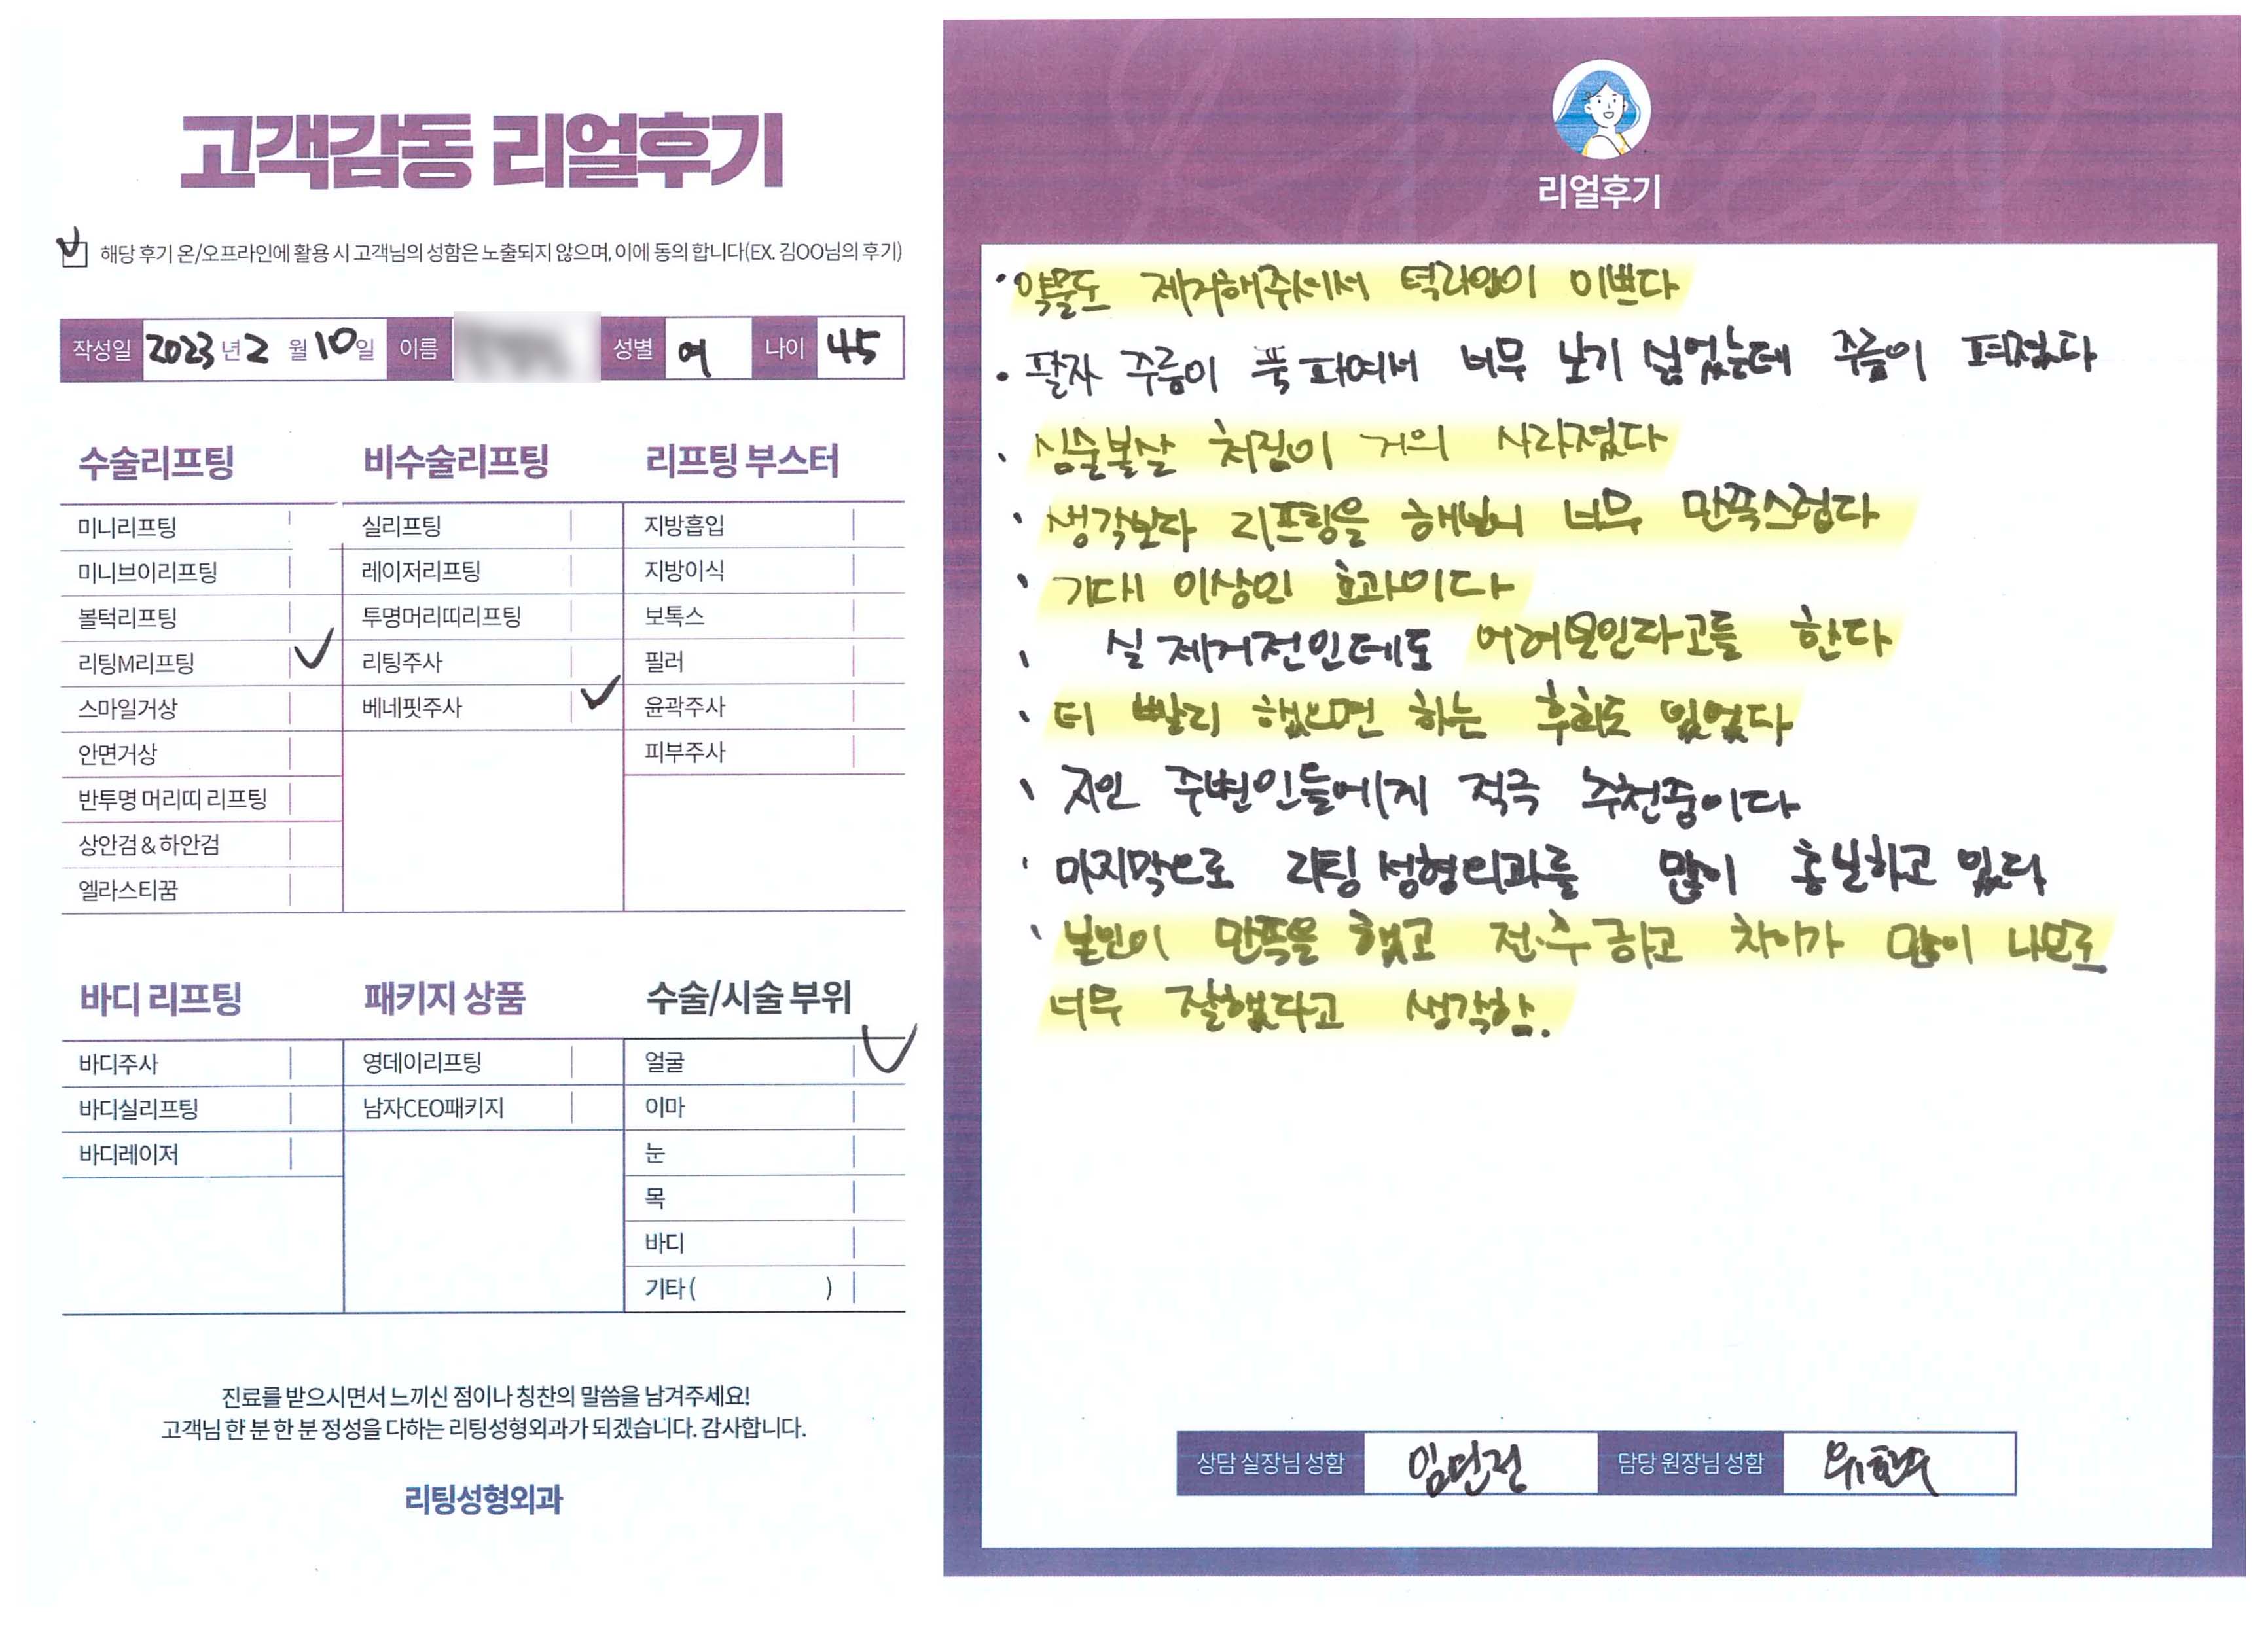 고객감동 리얼후기
해당 후기 온/오프라인에 활용 시 고객님의 성함은 노출되지 않으며, 이에 동의 합니다(EX. 김OO님의 후기)
작성일 2023년 2월 10일 이름 성별 여 나이 45
수술리프팅
미니리프팅
미니브이리프팅
볼턱리프팅
리팅M리프팅
스마일거상
안면거상
반투명 머리띠 리프팅
상안검 & 하안검
엘라스티꿈
비수술리프팅
실리프팅
레이저리프팅
투명머리띠리프팅
리팅주사
베네핏주사
리프팅 부스터
지방흡입
지방이식
보톡스
필러
윤곽주사
피부주사
바디 리프팅
바디주사
바디실리프팅
바디레이저
패키지 상품
영데이리프팅
남자CEO패키지
수술/시술 부위
얼굴
이마
눈
목
바디
기타 ( )
진료를 받으시면서 느끼신 점이나 칭찬의 말씀을 남겨주세요!
고객님 한 분 한 분 정성을 다하는 리팅성형외과가 되겠습니다. 감사합니다.
리팅성형외과
리얼후기
· 약물도 제거해주셔서 턱라인이 이쁘다
· 팔자 주름이 푹 파여서 너무 보기 싫었는데 주름이 펴졌다
· 심술볼살 처짐이 거의 사라졌다
· 생각보다 리프팅을 해보니 너무 만족스럽다
· 기대 이상인 효과이다
· 실 제거전인데도 어려보인다고들 한다
· 더 빨리 했으면 하는 후회도 있었다
· 지인 주변인들에게 적극 추천중이다
· 마지막으로 리팅 성형외과를 많이 홍보하고 있다
· 본인이 만족을 했고 전·후 하고 차이가 많이 나므로
너무 잘했다고 생각함.
상담 실장님 성함 담당 원장님 성함